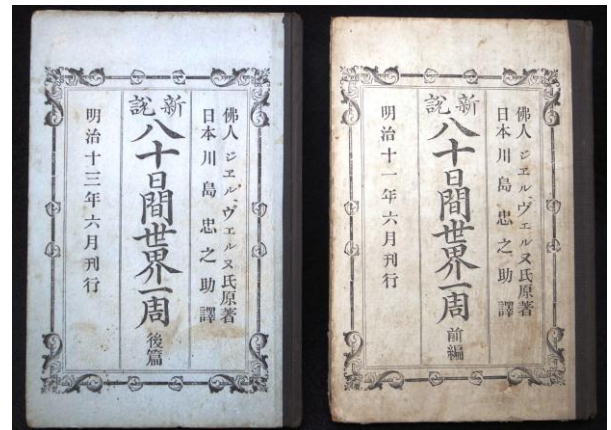 佛人ジエル、ヴェルヌ氏原著
日本川島忠之助譯
新説
八十日間世界一周
前編
明治十一年六月刊行
佛人ジエル、ヴェルヌ氏原著
日本川島忠之助譯
新説
八十日間世界一周
後篇
明治十三年六月刊行